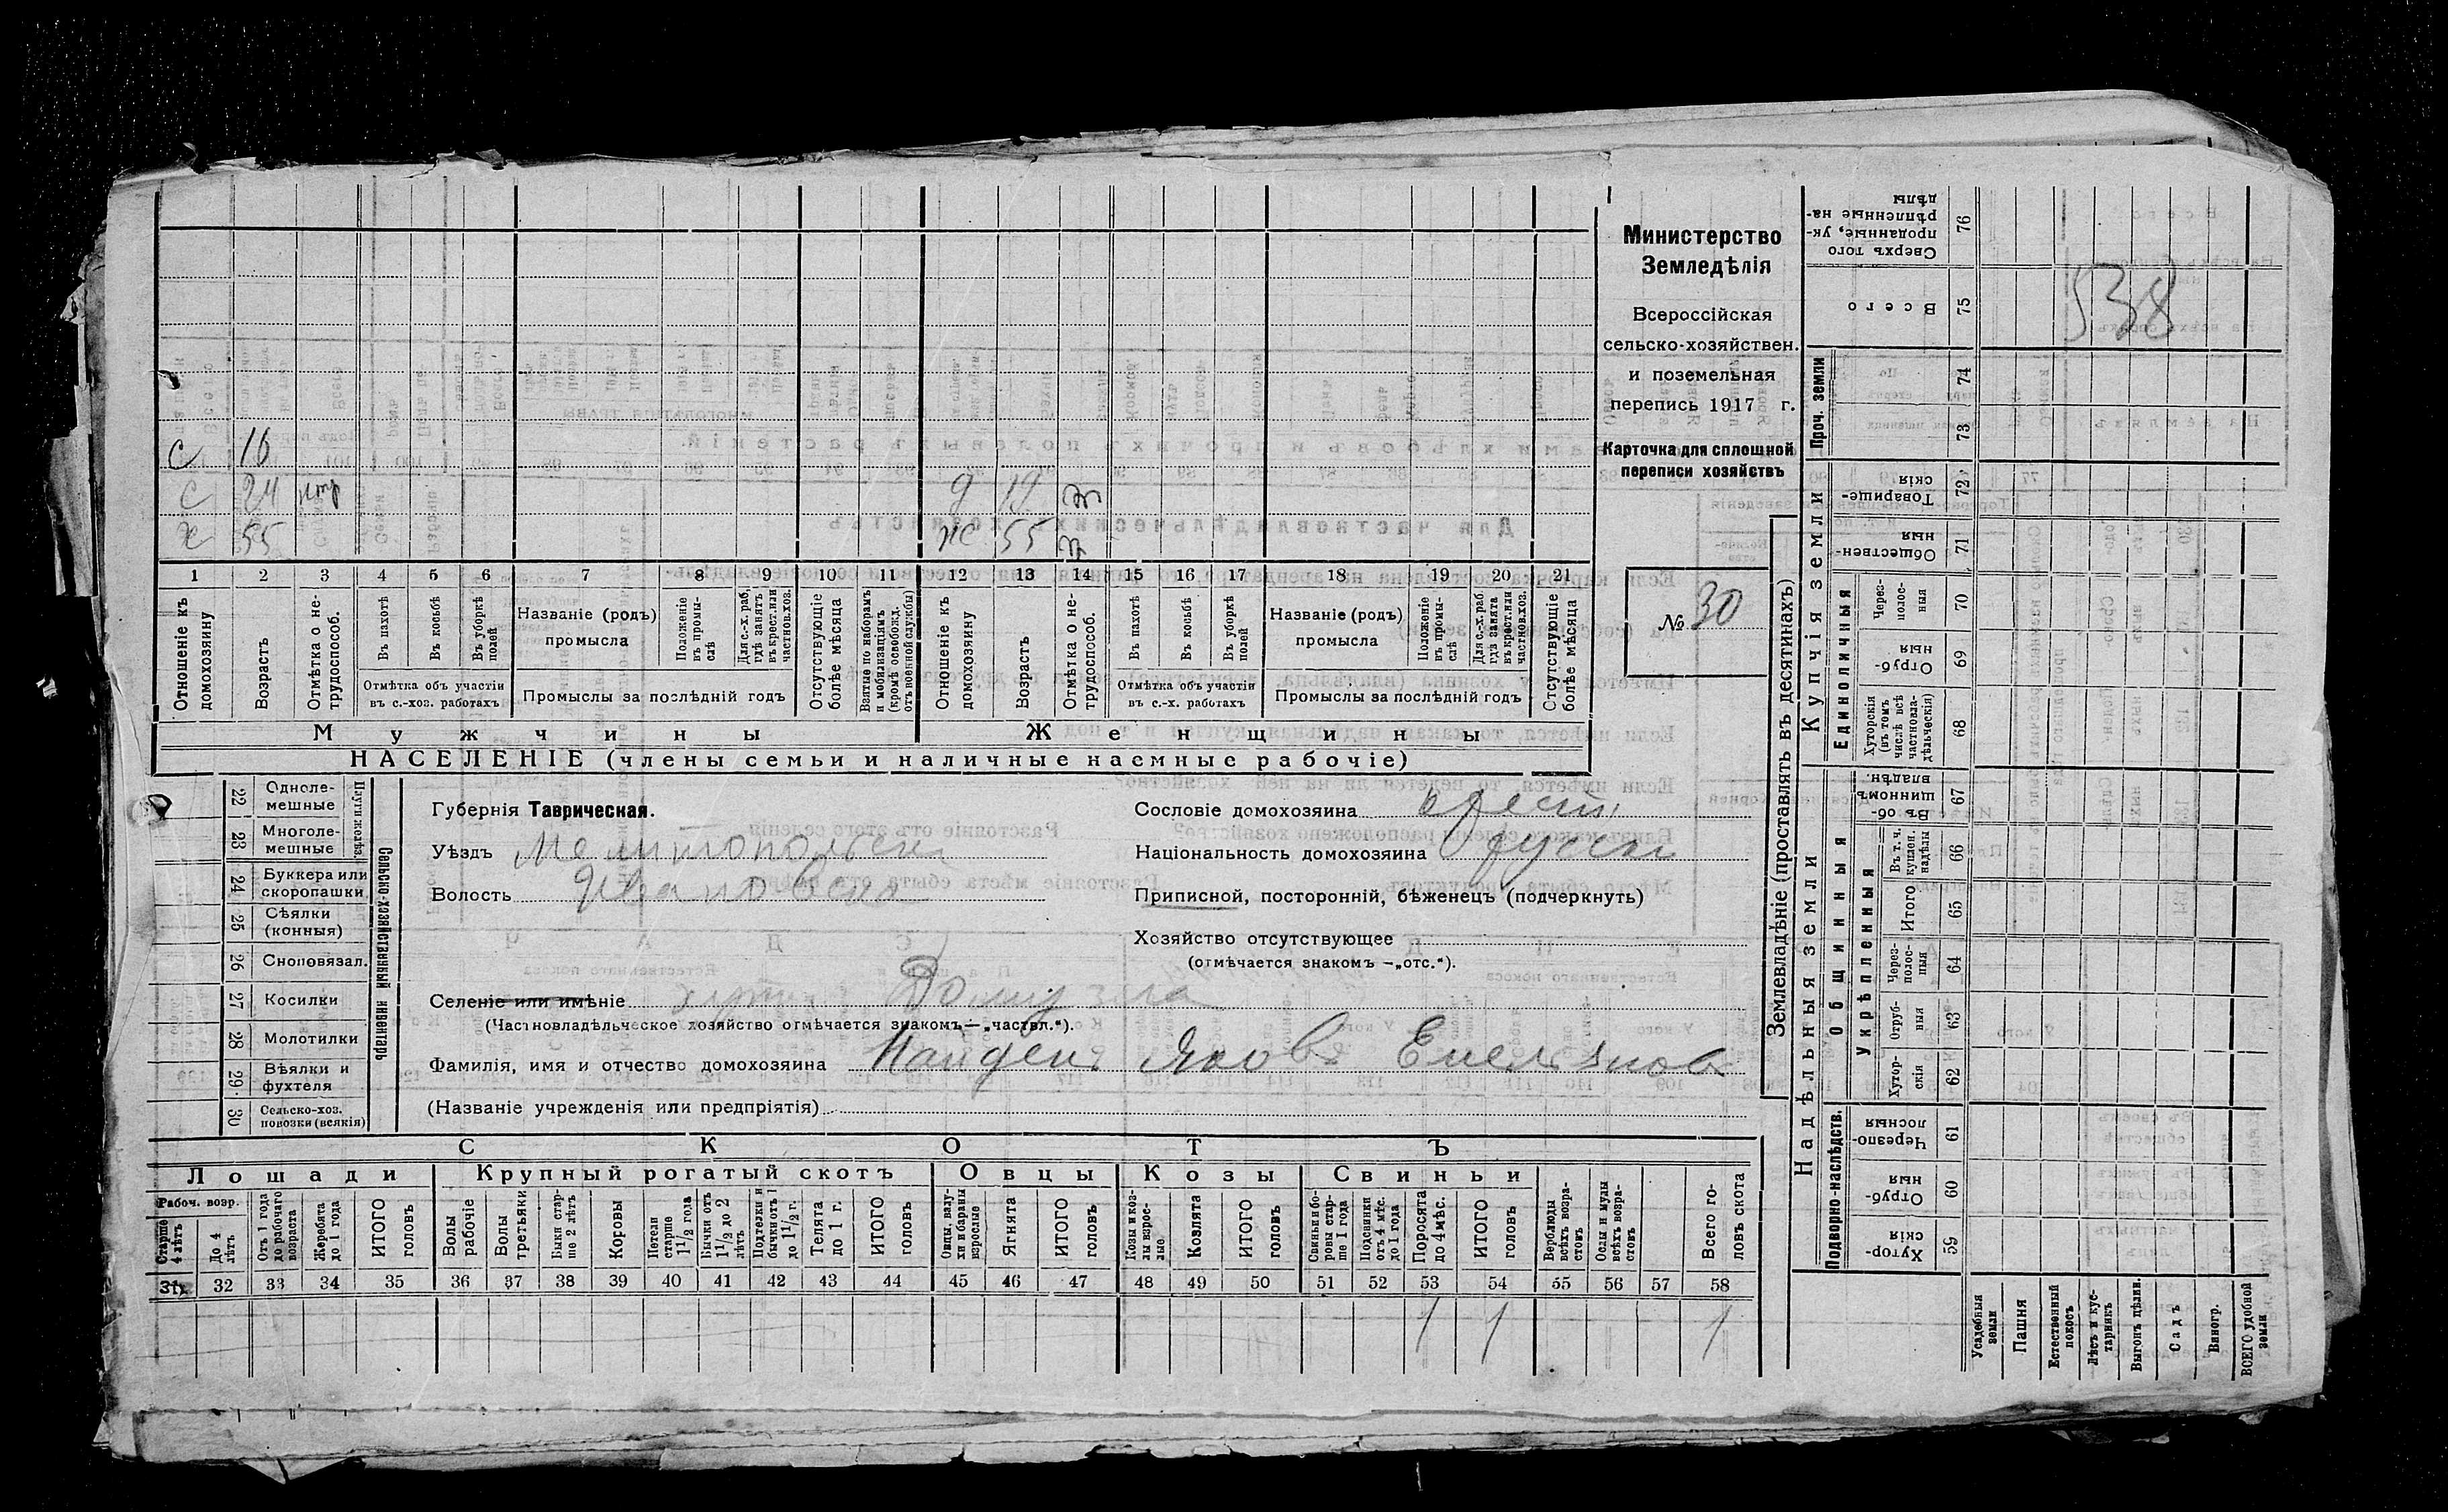 Министерство
Земледѣлія
Всероссійская
сельско-хозяйствен.
и поземельная
перепись 1917 г.
Карточка для сплошной
переписи хозяйствъ
№ 30
538
с 16
с 24
х 55
д 19
ж 55
1 2 3 4 5 6 7 8 9 10 11 12 13 14 15 16 17 18 19 20 21
Отношеніе къ домохозяину
Возрастъ
Отмѣтка о не-трудоспособ.
Въ пахотѣ
Въ косьбѣ
Въ уборкѣ полей
Отмѣтка объ участіи
въ с.-хоз. работахъ
Названіе (родъ)
промысла
Положеніе въ промы-слѣ
Для с.-х. раб., гдѣ занятъ въ крест. или частнов. хоз.
Промыслы за послѣдній годъ
Отсутствующіе болѣе мѣсяца
Взятые по наборамъ и мобилизаціямъ (кромѣ освобожд. отъ военной службы)
Отношеніе къ домохозяину
Возрастъ
Отмѣтка о не-трудоспособ.
Въ пахотѣ
Въ косьбѣ
Въ уборкѣ полей
Отмѣтка объ участіи
въ с.-х. работахъ
Названіе (родъ)
промысла
Положеніе въ промы-слѣ
Для с.-х. раб. гдѣ занята въ крест. или частнов. хоз.
Промыслы за послѣдній годъ
Отсутствующіе болѣе мѣсяца
Мужчины
Женщины
НАСЕЛЕНІЕ (члены семьи и наличные наемные рабочіе)
Сельско-хозяйственный инвентарь
Плуги желѣз.
22 Одноле-мешные
23 Многоле-мешные
24 Буккера или скоропашки
25 Сѣялки (конныя)
26 Сноповязал.
27 Косилки
28 Молотилки
29 Вѣялки и фухтеля
30 Сельско-хоз. повозки (всякія)
Губернія Таврическая.
Уѣздъ Мелитопольскі
Волость Ивановска
Селеніе или имѣніе
(Частновладѣльческое хозяйство отмѣчается знакомъ—„частвл.“).
Фамилія, имя и отчество домохозяина Найденъ Яковъ Емельянов
(Названіе учрежденія или предпріятія)
Сословіе домохозяина крест.
Національность домохозяина русскі
Приписной, посторонній, бѣженецъ (подчеркнуть)
Хозяйство отсутствующее
(отмѣчается знакомъ —„отс.“).
СКОТЪ
Лошади
Крупный рогатый скотъ
Овцы
Козы
Свиньи
Рабоч. возр.
Старше 4 лѣтъ
До 4 лѣтъ
Отъ 1 года до рабочаго возраста
Жеребята до 1 года
ИТОГО головъ
Волы рабочіе
Волы третьяки
Быки стар-ше 2 лѣтъ
Коровы
Нетели старше 1½ года
Бычки отъ 1½ до 2 лѣтъ
Подтелки и бычки отъ 1 до 1½ г.
Телята до 1 г.
ИТОГО головъ
Овцы, валу-хи и бараны взрослые
Ягнята
ИТОГО головъ
Козы и коз-лы взрос-лые
Козлята
ИТОГО головъ
Свиньи и бо-ровы стар-ше 1 года
Подсвинки отъ 4 мѣс. до 1 года
Поросята до 4 мѣс.
ИТОГО головъ
Верблюды всѣхъ возра-стовъ
Ослы и мулы всѣхъ возра-стовъ
Всего го-ловъ скота
31 32 33 34 35 36 37 38 39 40 41 42 43 44 45 46 47 48 49 50 51 52 53 54 55 56 57 58
1 1 1
Землевладѣніе (проставлять въ десятинахъ)
Надѣльныя земли
Купчія земли
Проч. земли
Подворно-наслѣдств.
Общинныя
Укрѣпленныя
Единоличныя
59 Хутор-скія
60 Отруб-ныя
61 Черезпо-лосныя
62 Хутор-скія
63 Отруб-ныя
64 Через-полос-ныя
65 Итого
66 Въ т. ч. куплен. надѣлы
67 Въ об-щинномъ владѣн.
68 Хуторскія (въ томъ числѣ всѣ частновла-дѣльческія)
69 Отруб-ныя
70 Через-полос-ныя
71 Обществен-ныя
72 Товарище-скія
73
74
75 Всего
76 Сверхъ того проданные, ук-рѣпленные на-дѣлы
Усадебныя земли
Пашня
Естественный покосъ
Лѣсъ и кус-тарникъ
Выгонъ цѣлин.
Садъ
Виногр.
ВСЕГО удобной земли